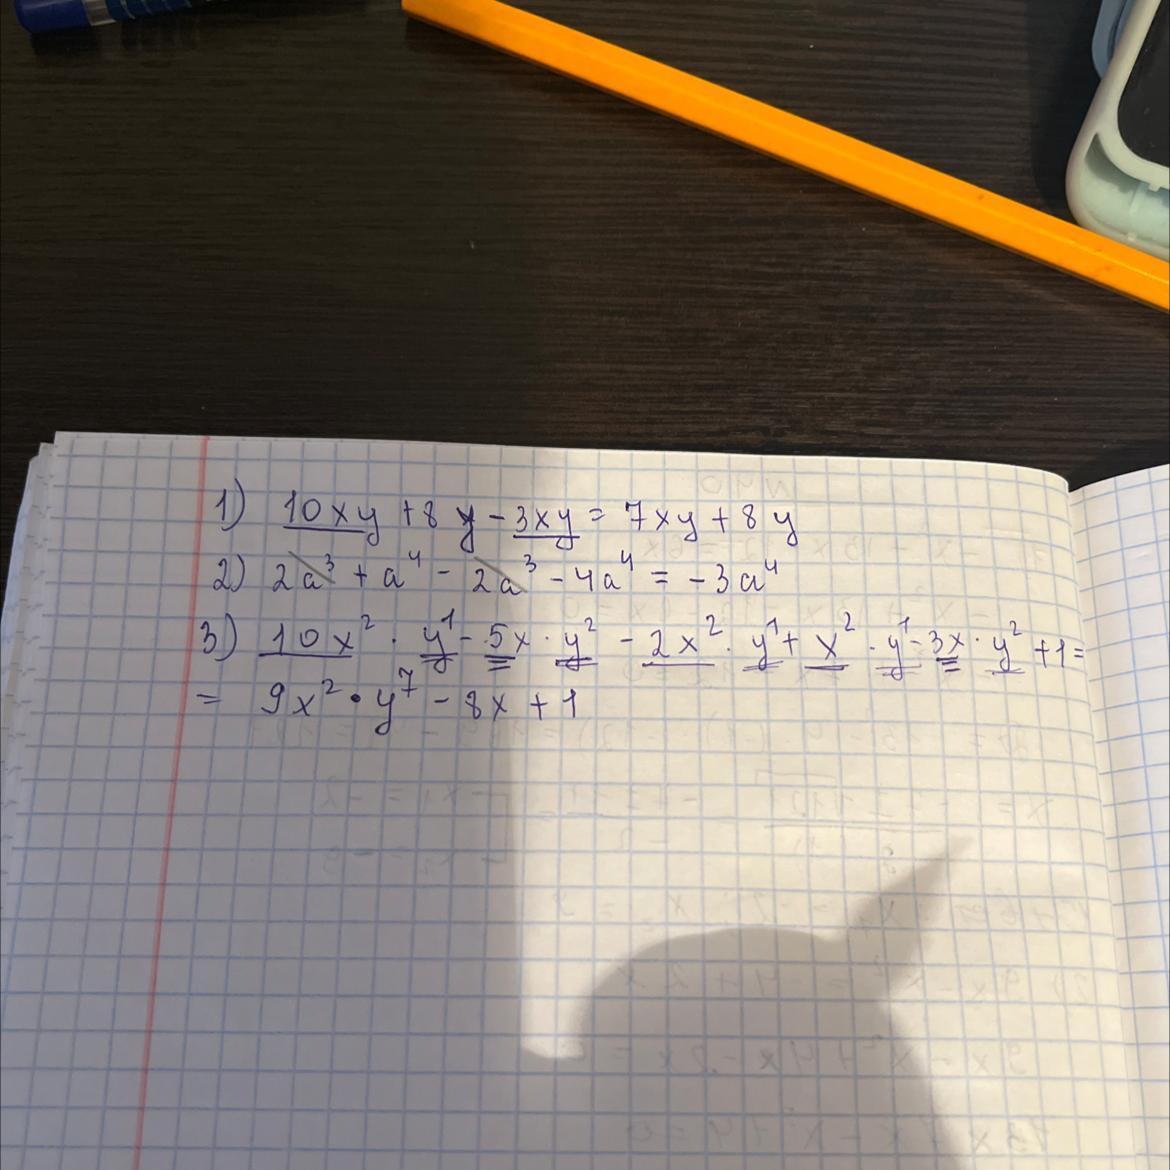 1) 10xy + 8y - 3xy = 7xy + 8y
2) 2a³ + a⁴ - 2a³ - 4a⁴ = -3a⁴
3) 10x² · y¹ - 5x · y² - 2x² · y¹ + x² · y¹ - 3x · y² + 1 =
= 9x² · y⁷ - 8x + 1